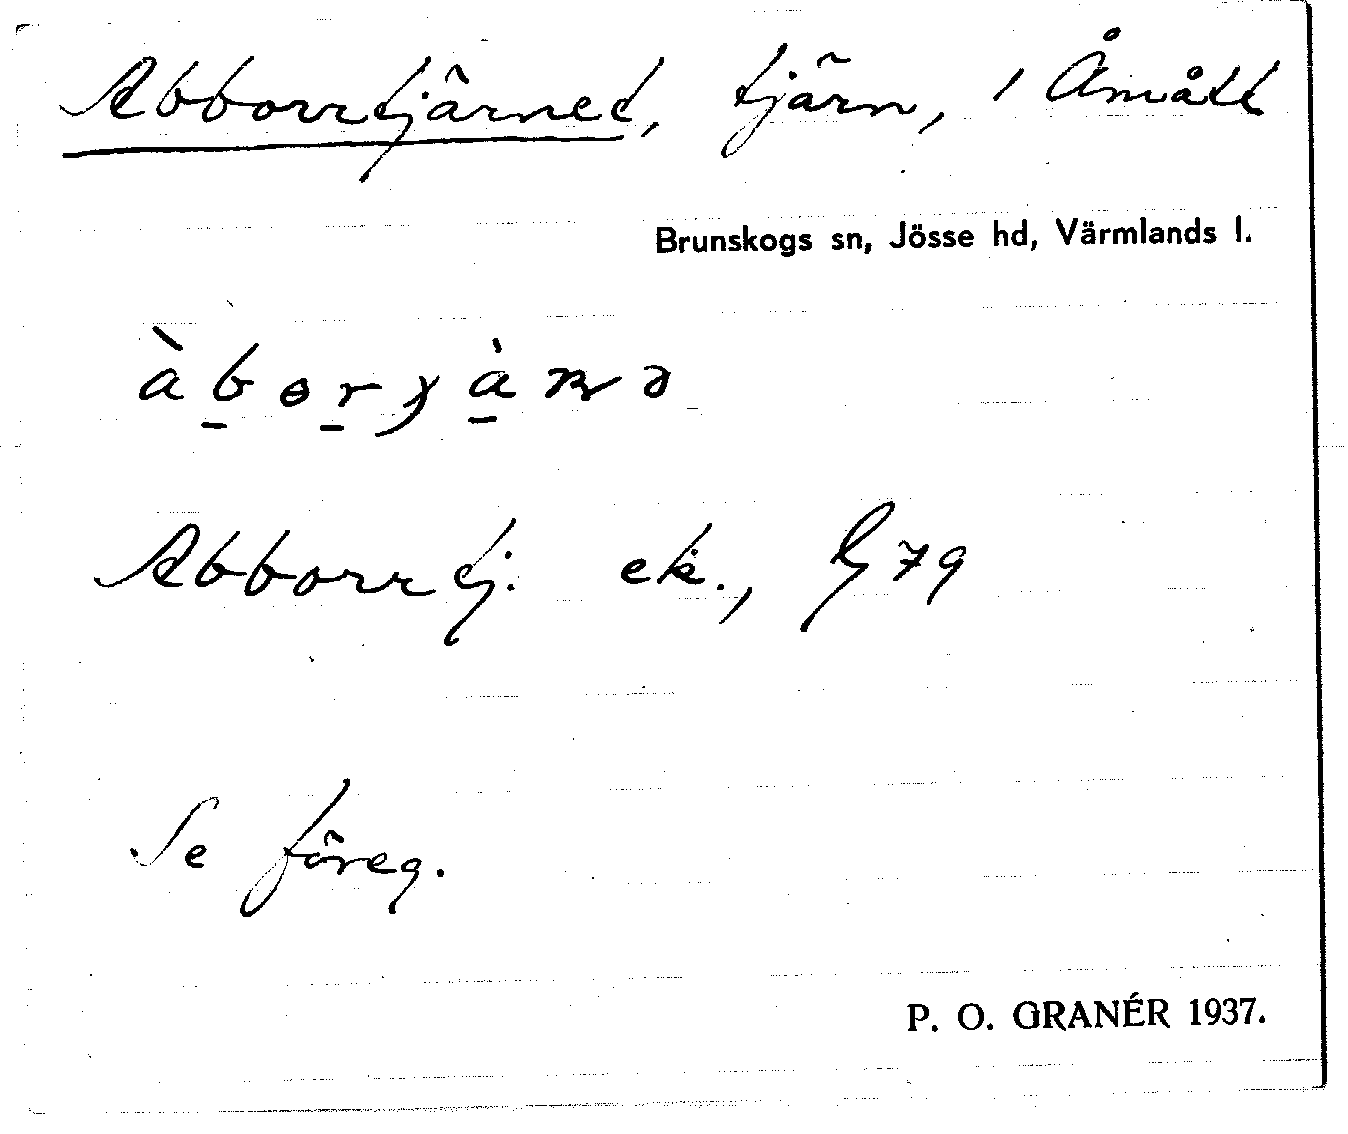 Abborrtjärnet, tjärn, i Åmått
Brunskogs sn, Jösse hd, Värmlands l.
Abborrtj. ek., 79
Se föreg.
P. O. GRANÉR 1937.